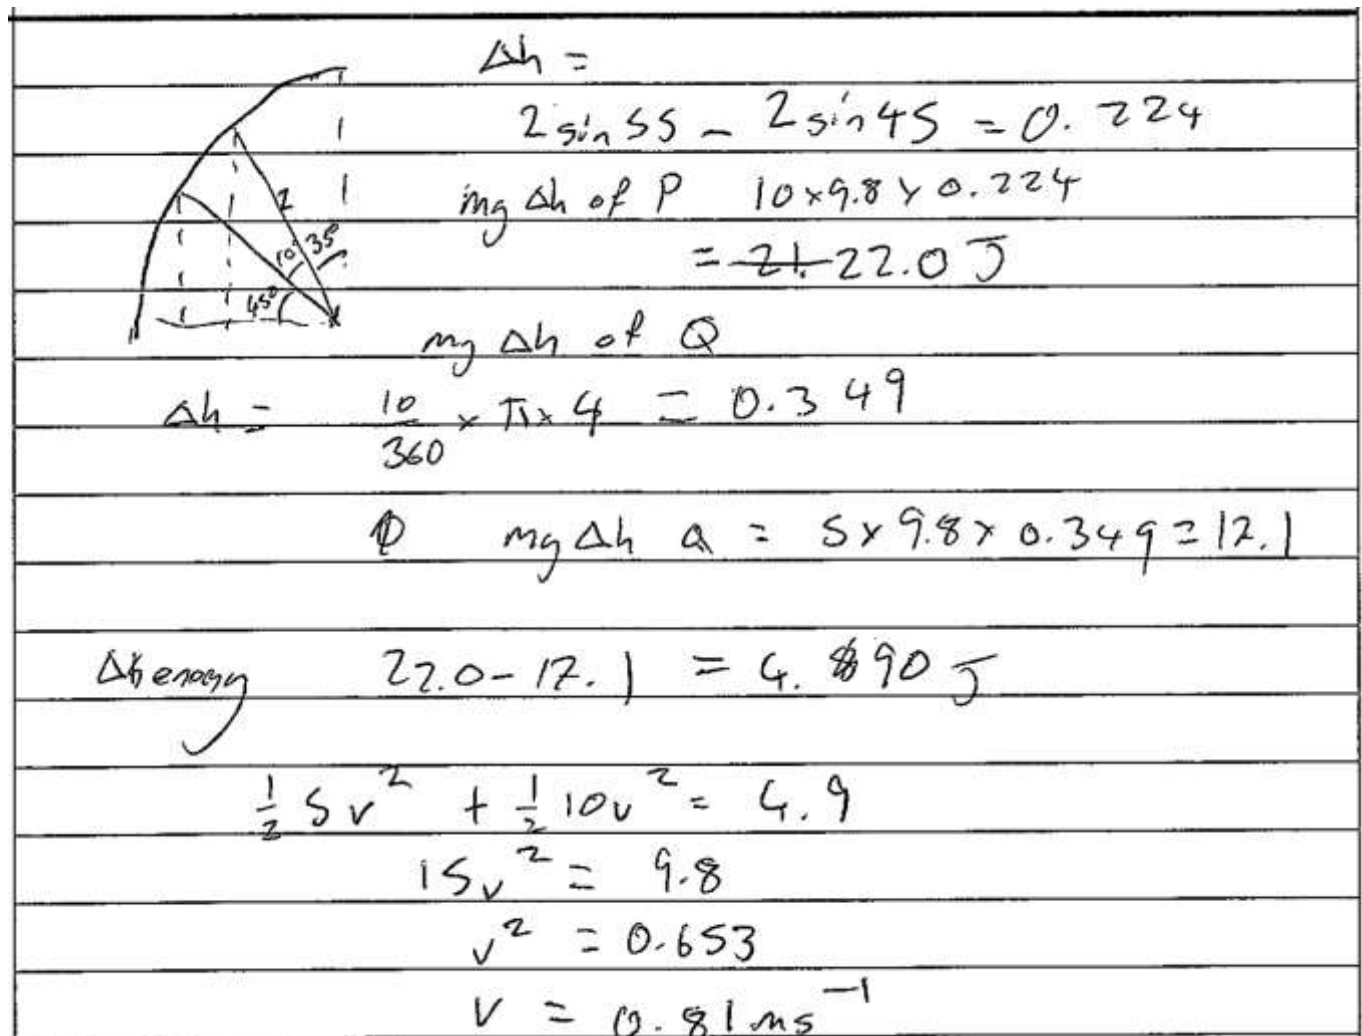 Δh =
2 sin 55 - 2 sin 45 = 0.224
mg Δh of P 10 × 9.8 × 0.224
= 21. 22.0 J
2
10° 35°
45°
mg Δh of Q
Δh = 10/360 × π × 4 = 0.349
mg Δh Q = 5 × 9.8 × 0.349 = 17.1
Δ energy 22.0 - 17.1 = 4.90 J
1/2 5v² + 1/2 10v² = 4.9
15v² = 9.8
v² = 0.653
v = 0.81 ms⁻¹